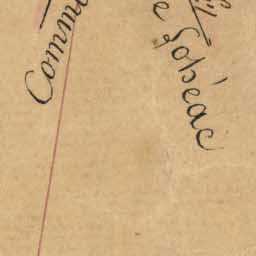 Commu
e Lobéac